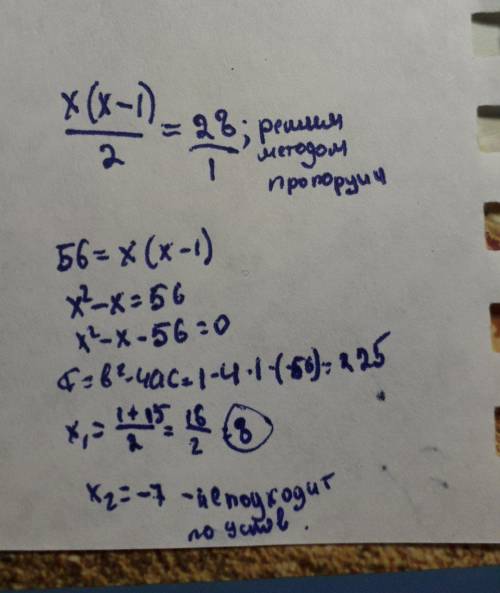 x(x-1)/2 = 28/1; решим
методом
пропорции
56 = x(x-1)
x²-x=56
x²-x-56=0
D=b²-4ac=1-4·1·(-56)=225
x₁=(1+15)/2=16/2=8
x₂=-7 -не подходит
по услов.